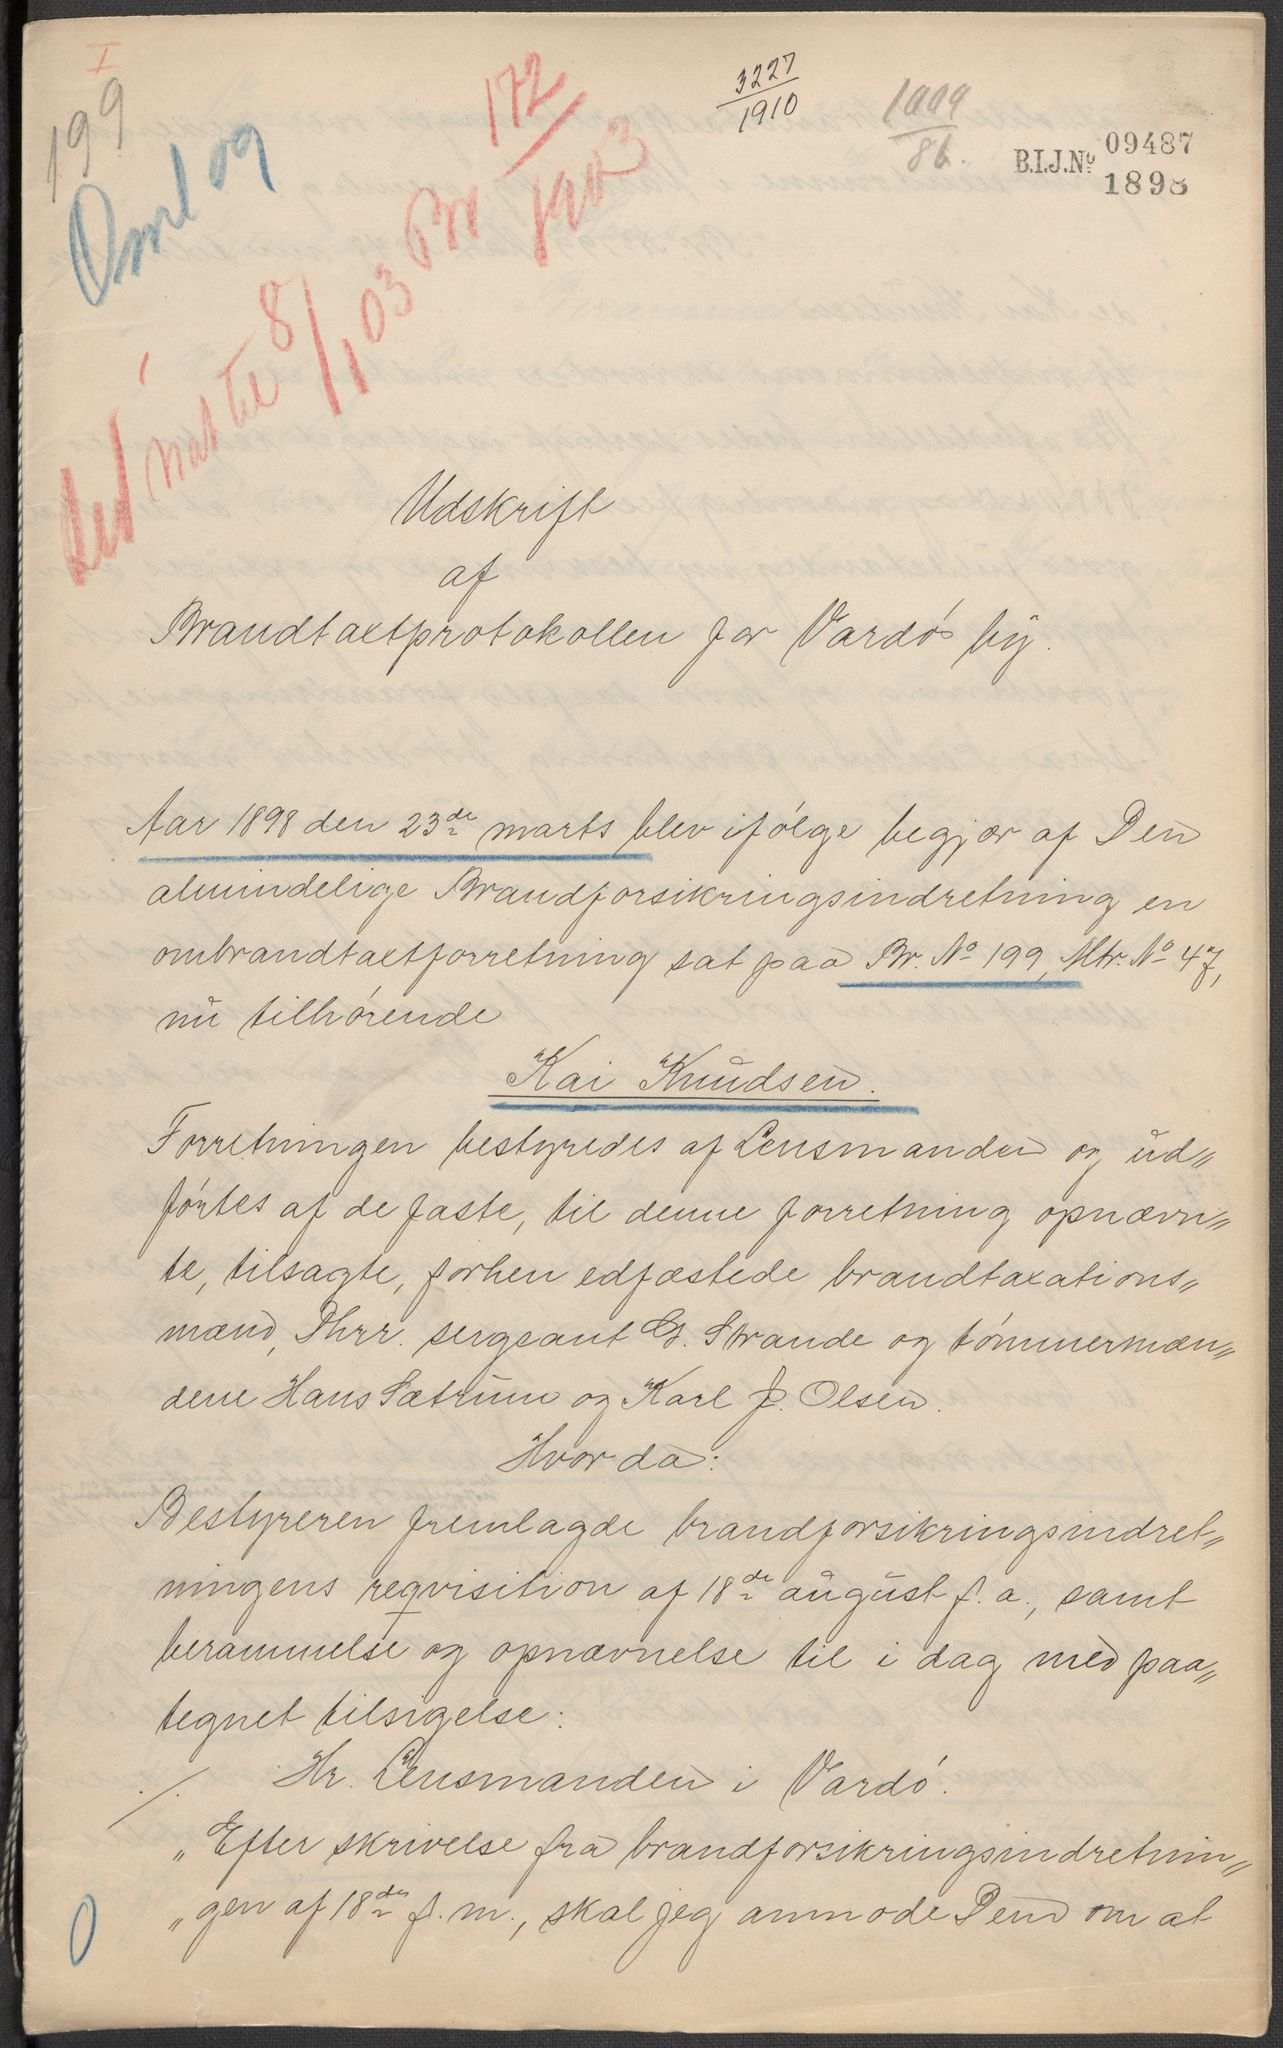 I
199
Oml og
172
1903
3227
1910
1009
86.
B.I.J.Nº 09487
1898
nat til 8/1 03 Br
Udskrift
af
Brandtaxtprotokollen for Vardø by.
Aar 1898 den 23de marts blev ifølge begjær af Den
almindelige Brandforsikringsindretning en
ombrandtaxtforretning sat paa Br. No 199, Mtr. No 47,
nu tilhørende
Kai Knudsen.
Forretningen bestyredes af Lensmanden og ud„
førtes af de faste, til denne forretning opnævn„
te, tilsagte, forhen edfæstede brandtaxations„
mænd, Dhrr. sergeant G. Strande og tømmermæn„
dene Hans Sætrum og Karl J. Olsen.
Hvorda:
Bestyreren fremlagde brandforsikringsindret„
ningens reqvisition af 18de august f. a., samt
berammelse og opnævnelse til i dag med paa„
tegnet tilsigelse:
./. Hr. Lensmanden i Vardø.
„Efter skrivelse fra brandforsikringsindretnin„
„gen af 18de f. m., skal jeg anmode Dem om at
0